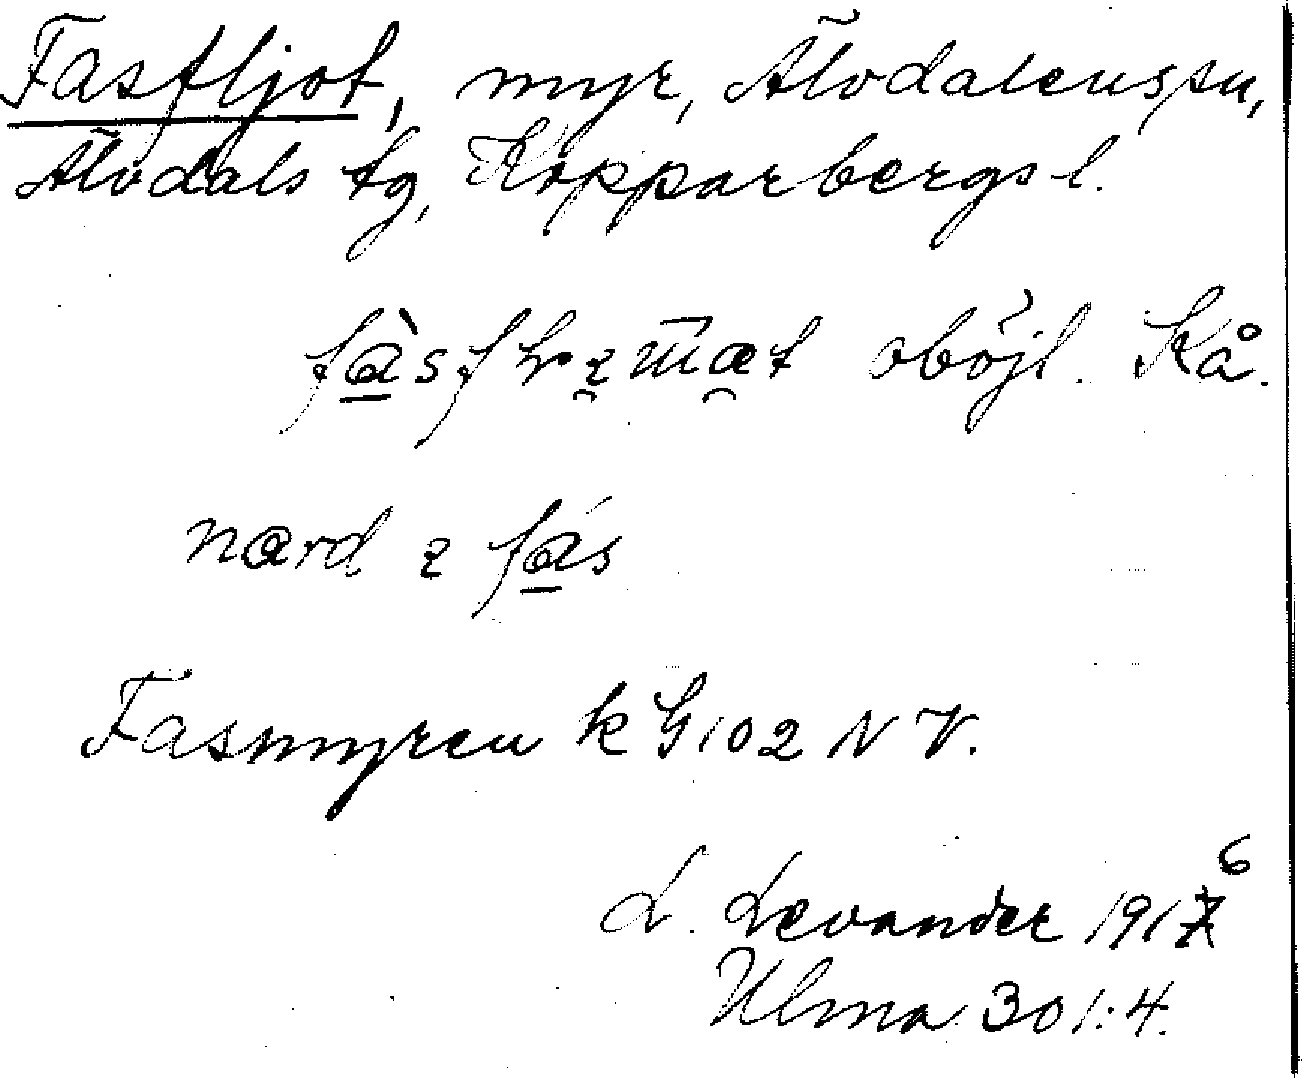 Fasfljot, myr, Älvdalens sn,
Älvdals tg, Kopparbergs l.
oböjl. Kå.
nard ı fás
Fasmyren k G 102 NV.
L. Levander 1916
Ulma 301:4.